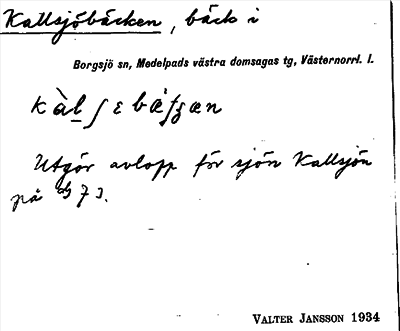 Kallsjöbäcken, bäck i
Borgsjö sn, Medelpads västra domsagas tg, Västernorrl. l.
Utgör avlopp för sjön Kallsjön
på
VALTER JANSSON 1934